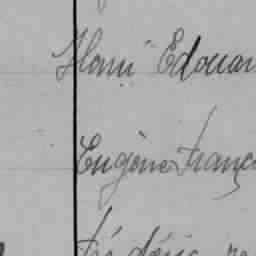 Henri Edouar
Eugène Franç
Frédéric